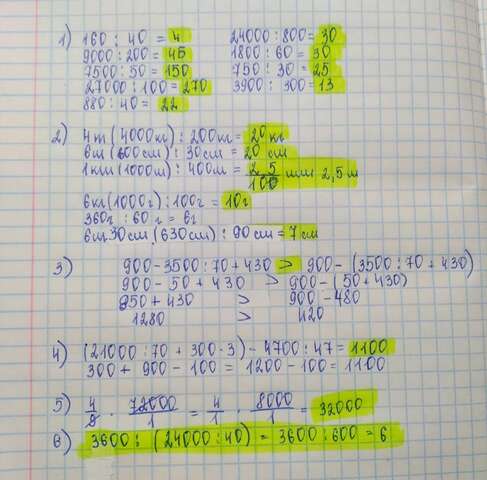 1) 160 : 40 = 4 24000 : 800 = 30
9000 : 200 = 45 1800 : 60 = 30
7500 : 50 = 150 750 : 30 = 25
27000 : 100 = 270 3900 : 300 = 13
880 : 40 = 22
2) 4т (4000кг) : 200кг = 20кг
6м (600см) : 30см = 20 см
1км (1000м) : 400м = 25/100 или 2,5м
6кг (1000г) : 100г = 10г
360г : 60 г = 6г
6м 30см (630см) : 90 см = 7см
3) 900 - 3500 : 70 + 430 > 900 - (3500 : 70 + 430)
900 - 50 + 430 > 900 - (50 + 430)
850 + 430 > 900 - 480
1280 > 420
4) (21000 : 70 + 300 · 3) - 4700 : 47 = 1100
300 + 900 - 100 = 1200 - 100 = 1100
5) 4/9 · 72000/1 = 4/1 · 8000/1 = 32000
6) 3600 : (24000 : 40) = 3600 : 600 = 6